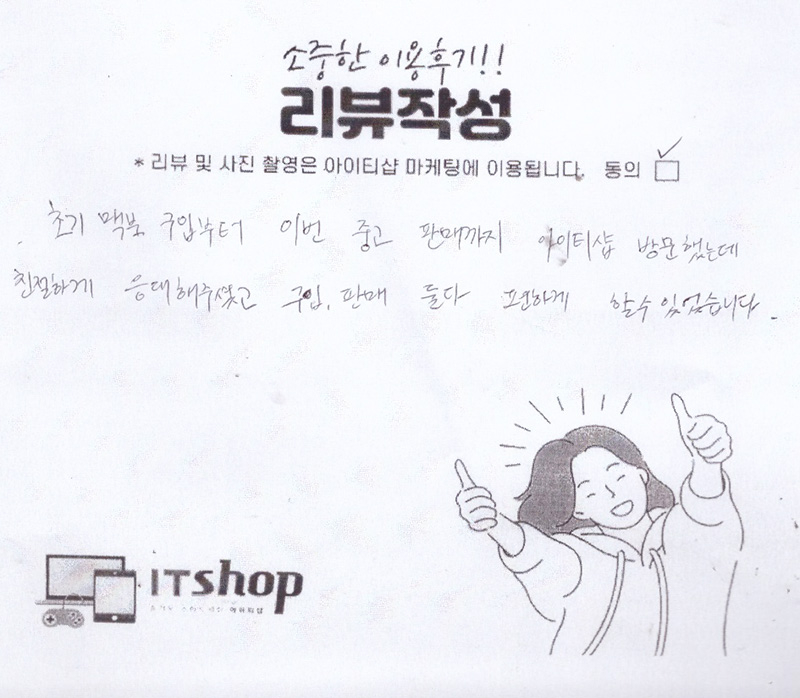 소중한 이용후기!!
리뷰작성
* 리뷰 및 사진 촬영은 아이티샵 마케팅에 이용됩니다. 동의 ✓
초기 맥북 구입부터 이번 중고 판매까지 아이티샵 방문했는데
친절하게 응대해주셨고 구입, 판매 둘다 편하게 할수있었습니다.
ITshop
아이티샵